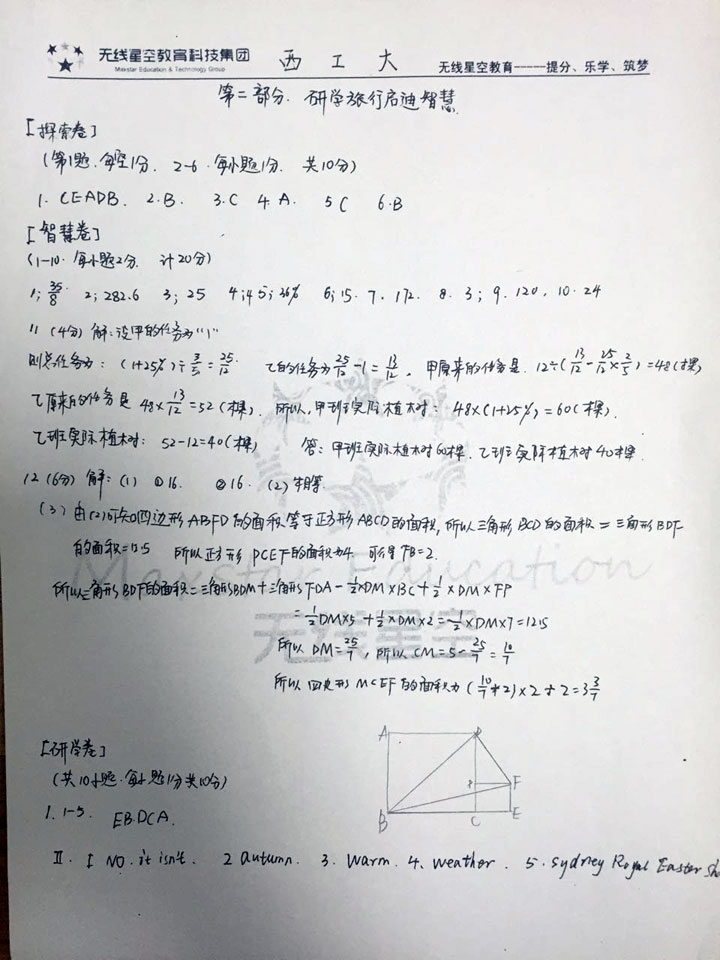 无线星空教育科技集团
Maxstar Education & Technology Group
西工大
无线星空教育-----提分、乐学、筑梦
第二部分. 研学旅行启迪智慧
[探索卷]
(第1题.每空1分. 2-6.每小题1分. 共10分)
1. CEADB. 2.B. 3.C 4.A. 5C 6.B
[智慧卷]
(1-10.每小题2分. 计20分)
1; 35/8. 2; 282.6 3; 25 4;45; 36% 6; 15. 7. 172. 8. 3; 9. 120. 10. 24
11 (4分) 解:设甲的任务为"1"
则总任务为: (1+25%)÷3/5=25/12 乙的任务为25/12-1=13/12. 甲原来的任务是. 12÷(13/12-25/12×2/5)=48(棵)
乙原来的任务是 48×13/12=52 (棵). 所以,甲班实际植树: 48×(1+25%)=60(棵).
乙班实际植树: 52-12=40(棵) 答: 甲班实际植树60棵. 乙班实际植树40棵
12 (6分) 解: (1) ①16. ②16. (2)相等.
(3) 由(2)可知四边形ABFD的面积等于正方形ABCD的面积,所以三角形BCD的面积=三角形BDF
的面积=12.5 所以正方形PCEF的面积为4. 可得FB=2.
所以三角形BDF的面积=三角形BDM+三角形FDA-1/2×DM×BC+1/2×DM×FP
=1/2DM×5+1/2×DM×2=1/2×DM×7=12.5
所以 DM=25/7, 所以 CM=5-25/7=10/7
所以四边形MCEF的面积为(10/7+2)×2÷2=3 3/7
Maxstar Education
无线星空
A D
P F
B C E
[研学卷]
(共10小题.每小题1分共10分)
I. 1-5. EBDCA.
II. 1 NO. it isn't. 2 autumn. 3. warm. 4. weather. 5. Sydney Royal Easter